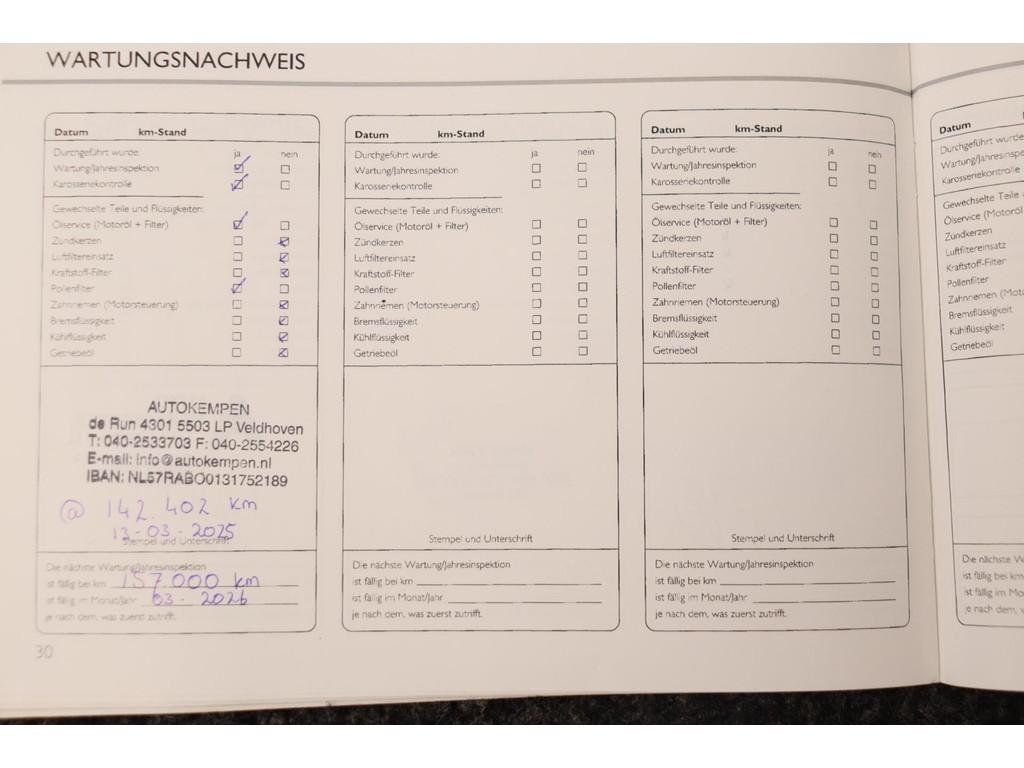 WARTUNGSNACHWEIS
Datum km-Stand
Durchgeführt wurde: ja nein
Wartung/Jahresinspektion
Karosseriekontrolle
Gewechselte Teile und Flüssigkeiten:
Ölservice (Motoröl + Filter)
Zündkerzen
Luftfiltereinsatz
Kraftstoff-Filter
Pollenfilter
Zahnriemen (Motorsteuerung)
Bremsflüssigkeit
Kühlflüssigkeit
Getriebeöl
AUTOKEMPEN
de Run 4301 5503 LP Veldhoven
T: 040-2533703 F: 040-2554226
E-mail: info@autokempen.nl
IBAN: NL57RABO0131752189
@ 142.402 km
13-03-2025
Stempel und Unterschrift
Die nächste Wartung/Jahresinspektion
ist fällig bei km 157.000 km
ist fällig im Monat/Jahr 03-2026
je nach dem, was zuerst zutrifft.
30
Datum km-Stand
Durchgeführt wurde: ja nein
Wartung/Jahresinspektion
Karosseriekontrolle
Gewechselte Teile und Flüssigkeiten:
Ölservice (Motoröl + Filter)
Zündkerzen
Luftfiltereinsatz
Kraftstoff-Filter
Pollenfilter
Zahnriemen (Motorsteuerung)
Bremsflüssigkeit
Kühlflüssigkeit
Getriebeöl
Stempel und Unterschrift
Die nächste Wartung/Jahresinspektion
ist fällig bei km
ist fällig im Monat/Jahr
je nach dem, was zuerst zutrifft.
Datum km-Stand
Durchgeführt wurde: ja nein
Wartung/Jahresinspektion
Karosseriekontrolle
Gewechselte Teile und Flüssigkeiten:
Ölservice (Motoröl + Filter)
Zündkerzen
Luftfiltereinsatz
Kraftstoff-Filter
Pollenfilter
Zahnriemen (Motorsteuerung)
Bremsflüssigkeit
Kühlflüssigkeit
Getriebeöl
Stempel und Unterschrift
Die nächste Wartung/Jahresinspektion
ist fällig bei km
ist fällig im Monat/Jahr
je nach dem, was zuerst zutrifft.
Datum
Durchgeführt wurde:
Wartung/Jahresinspe
Karosseriekontrolle
Gewechselte Teile
Ölservice (Motoröl
Zündkerzen
Luftfiltereinsatz
Kraftstoff-Filter
Pollenfilter
Zahnriemen (Moto
Bremsflüssigkeit
Kühlflüssigkeit
Getriebeöl
Die nächste W
ist fällig bei km
ist fällig im Mo
je nach dem,